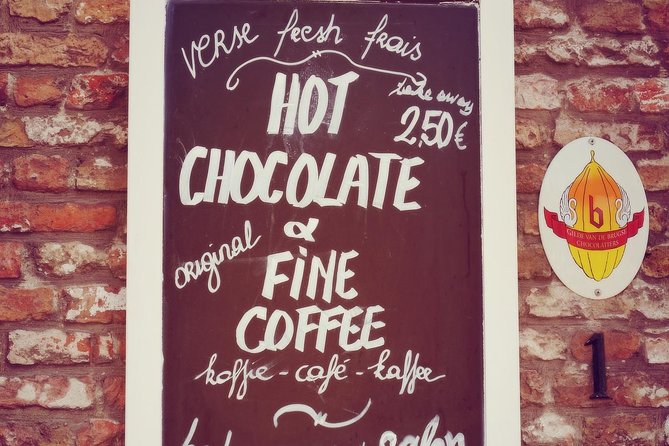 verse fresh frais
HOT
take away
2,50€
CHOCOLATE
&
original
FiNE
COFFEE
koffie - café - kaffee
salon
b
GILDE VAN DE BRUGSE
CHOCOLATIERS
1